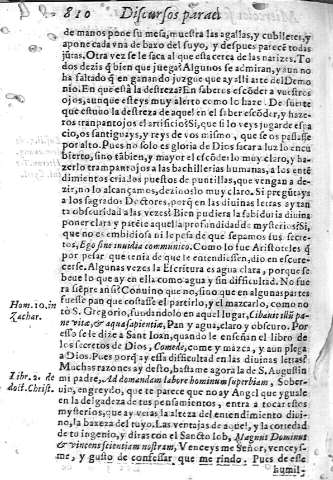 810 Discursos para el
de manos pone su mesa, muestra las agallas, y cubiletes, y
apone cada vna de baxo del suyo, y despues parecẽ todas
jũtas. Otra vez se le saca al que està cerca de las narizes. To
dos dezis q̃ bien que juega! Algunos se admiran, y aun no
ha faltado q̃ en ganando juzgue que ay alli arte del Demo
nio. En que està la destreza? En saberes escõder a vuestros
ojos, aunque esteys muy alerto como lo haze. De suerte
que estuuo la destreza de aquel en el saber escõder, y haze-
ros tranpantojos el artificio? Si, que si lo veys jugar de espa
cio, os santiguays, y reys de vos mismo, que se os passasse
por alto. Pues no solo es gloria de Dios sacar a luz lo encu
bierto, sino tãbien, y mayor el escõder lo muy claro, y ha-
zerlo trampantojos a las bachillerias humanas, a los entẽ
dimientos criados puestos de puntillas, que vengan a de-
zir, no lo alcançamos, dezinoslo muy claro. Si pregũtays
a los sagrados Doctores, porq̃ en las diuinas letras ay tan
ta obscuridad a las vezes? Bien pudiera la sabiduria diuina
poner clara y patẽte aquella profundidad de mysterios? Si,
que no es embidiosa ni le pesa de que sepamos sus secre-
tos, Ego sine inuidia communico. Como lo fue Aristoteles q̃
por pesar que tenia de que le entendiessen, dio en escure-
cerse. Algunas vezes la Escritura es agua clara, porque se
beue lo que ay en ella como agua y sin dificultad. No fue
ra siẽpre ansi? Conuino que no, sino que en algunas partes
fuesse pan que costasse el partirlo, y el mazcarlo, como no
tò S. Gregorio, fundandolo en aquel lugar, Cibauit illũ pa-
ne vitæ, & aqua sapientiæ, Pan y agua, claro y obscuro. Por
esso se le dize a Sant Iuan, quando le enseñan el libro de
los secretos de Dios, Comede, come y mazca, y aun plega
a Dios. Pues porq̃ ay essa dificultad en las diuinas letras?
Muchas razones ay desto, bastame agora la de S. Augustin
mi padre, Ad domandam labore hominum superbiam, Sober-
uio, engreydo, que te parece que no ay Angel que yguale
en la delgadeza de tus pensamientos, entra a tocar estos
mysterios, que ay veras la alteza del entendimiento diui-
no, la baxeza del tuyo. Las ventajas de aquel, y la cortedad
de tu ingenio, y diras con el Sancto Iob, Magnus Dominus
& vincens scientiam nostram, Venceys me Señor, venceys-
me, y gusto de confessar que me rindo. Pues de esse
humil-
Hom. 10. in
Zachar.
Libr. 2. de
doct. Christ.